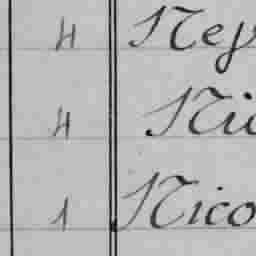 4 Ney
4 Nic
1 Nico